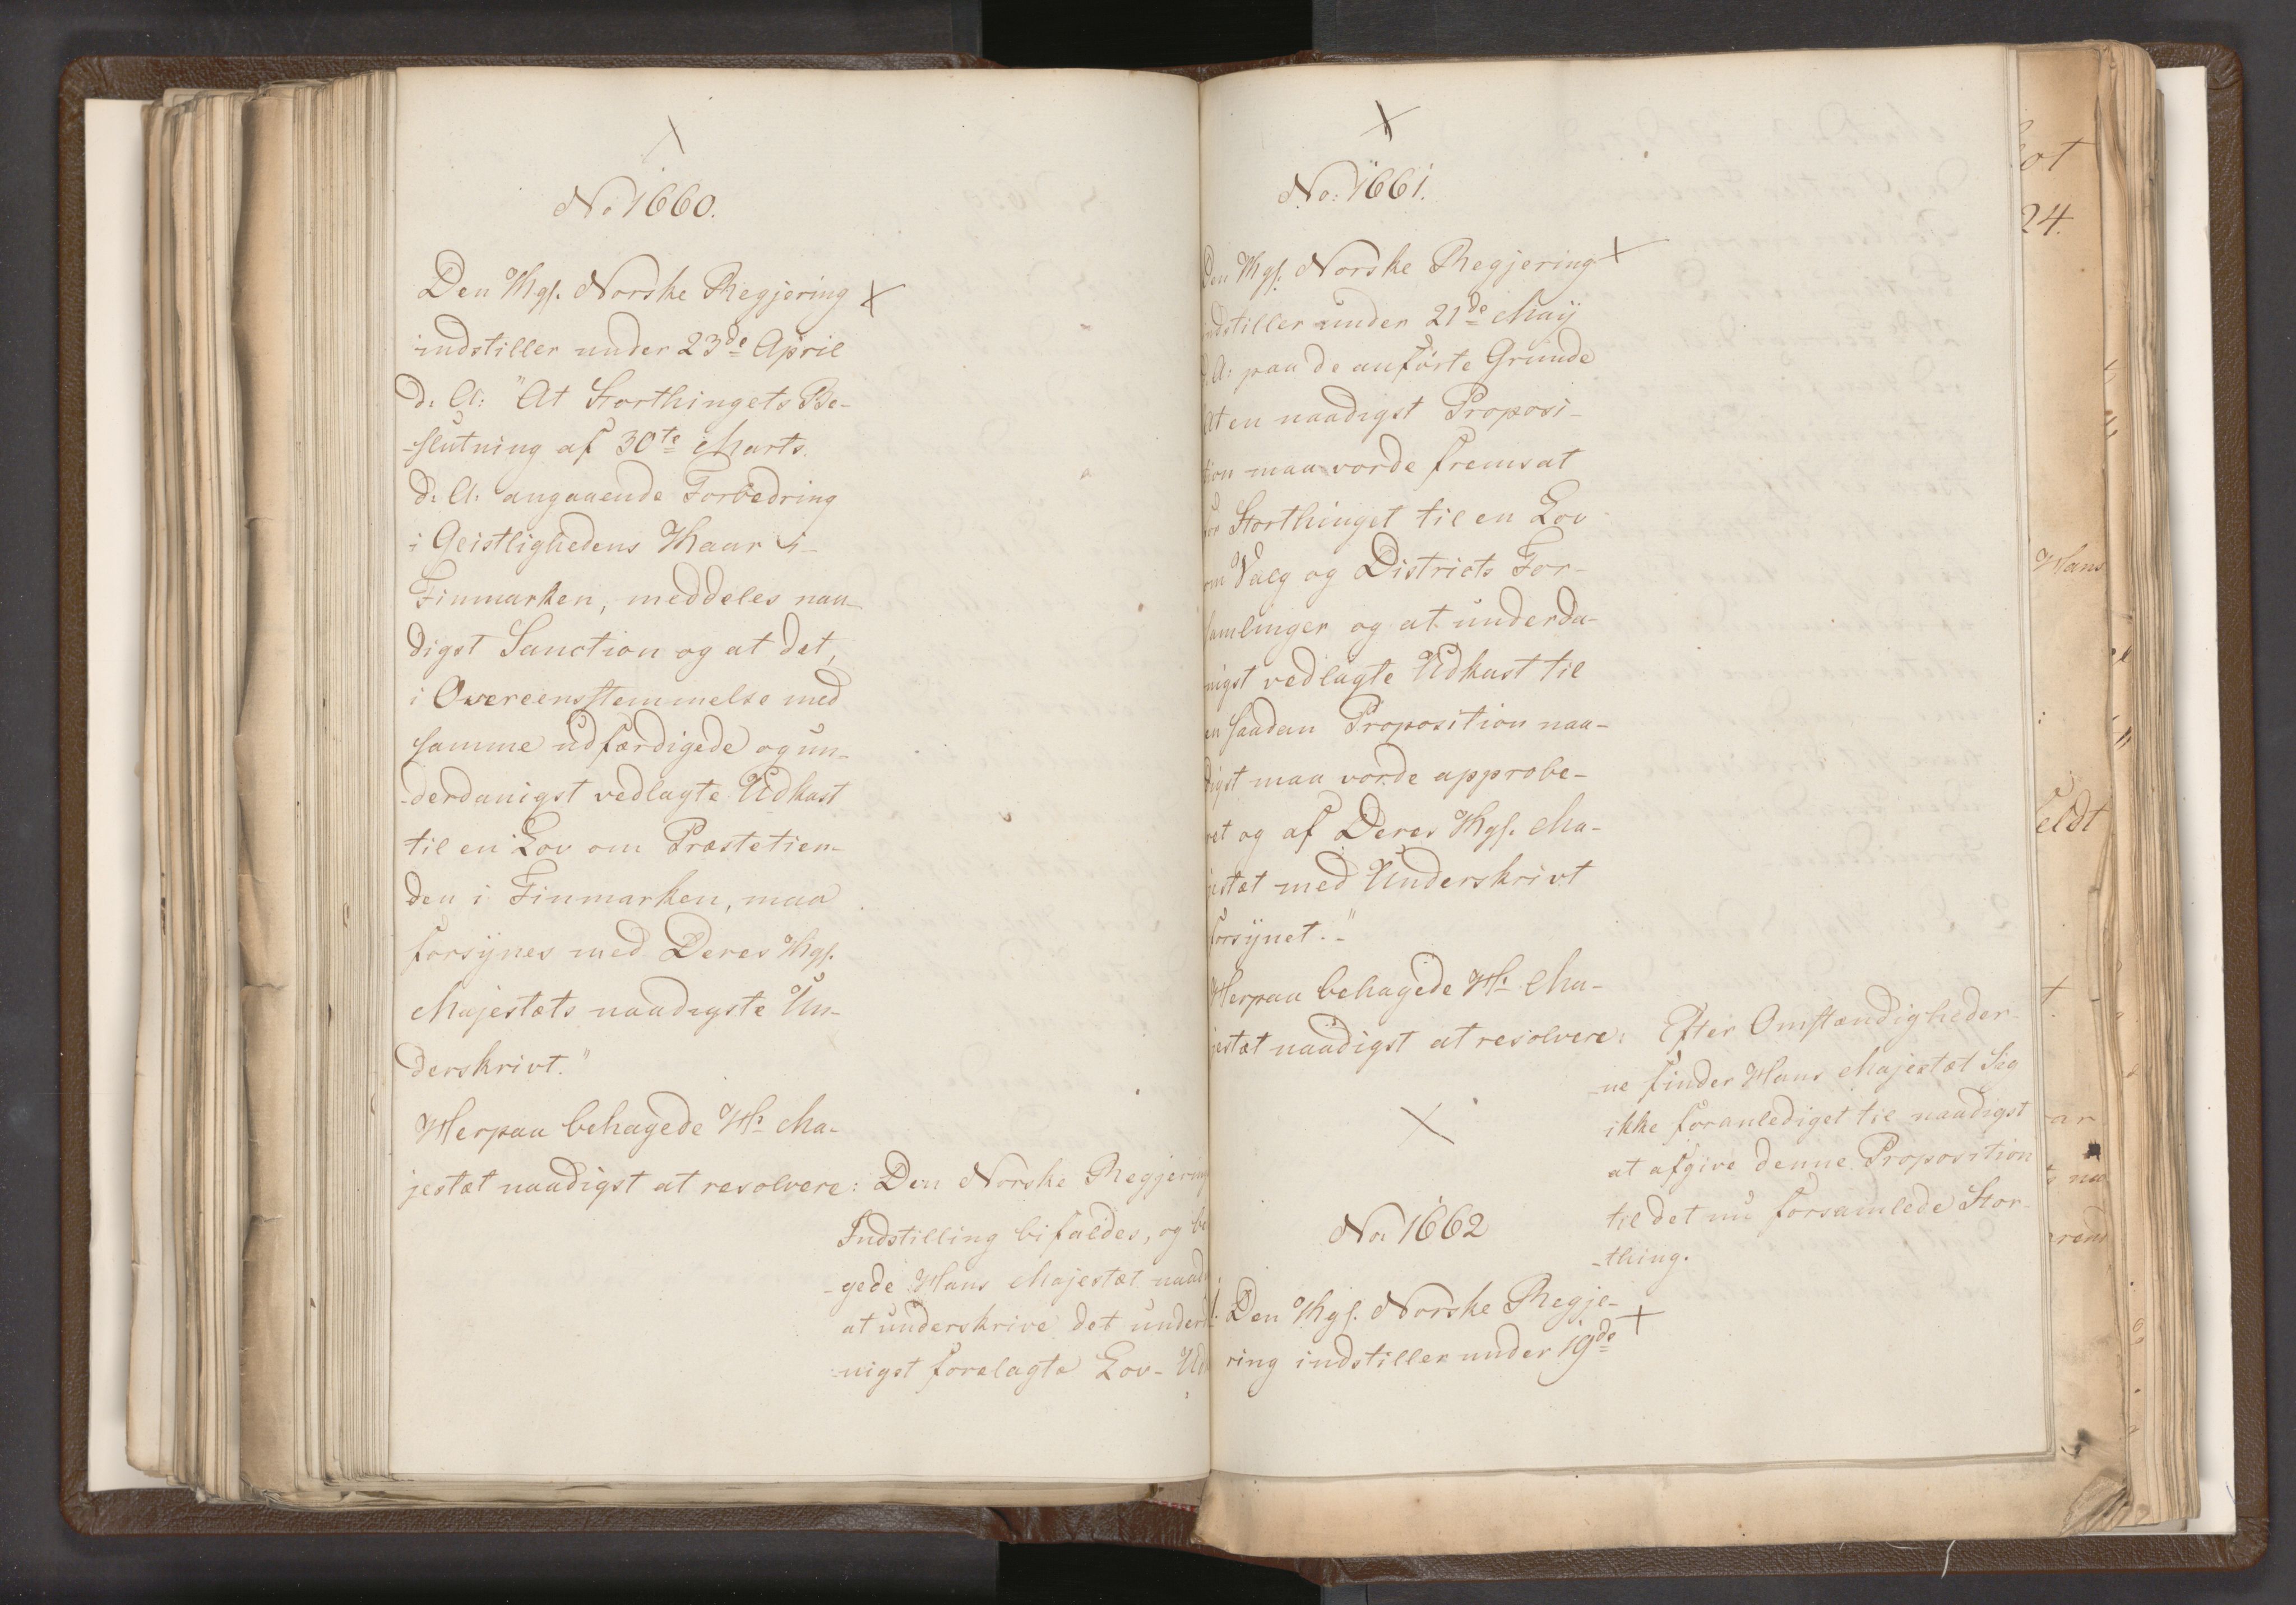 No 1660.
Den Kgs. Norske Regjering
indstiller under 23de April
d: A: "At Storthingets Be-
-slutning af 30te Marts
d: A: angaaende Forbedring
i Geistlighedens Kaar i
Finmarken, meddeles naa-
digst Sanction og at det,
i Overeensstemmelse med
samme udfærdigede og un-
-derdanigst vedlagte Udkast
til en Lov om Præstetien-
den i Finmarken, maa
forsynes med Deres Kgs.
Majestæts naadigste Un-
derskrivt."
Herpaa behagede Hs Ma-
jestæt naadigst at resolvere: Den Norske Regjering
Indstilling bifaldes, og be
-gede Hans Majestæt naad
at underskrive det underd
-nigst forelagte Lov-Ud
No: 1661.
Den Kgs. Norske Regjering
indstiller under 21de Maÿ
d. A: paa de anførte Grunde
At en naadigst Proposi-
tion maa vorde fremsat
for Storthinget til en Lov
om Valg og Districts For-
samlinger og at underda-
nigst vedlagte Udkast til
en saadan Proposition naa-
digst maa vorde approbe-
ret og af Deres Kgs. Ma-
jestæt med Underskrivt
forsynet."-
Herpaa behagede Hs Ma-
jestæt naadigst at resolvere: Efter Omstændigheder-
-ne finder Hans Majestæt Sig
ikke foranlediget til naadigst
at afgive denne Proposition
til det nu forsamlede Stor-
-thing.
No: 1662
Den Kgs. Norske Regje-
ring indstiller under 19de
24.
Hans
feldt